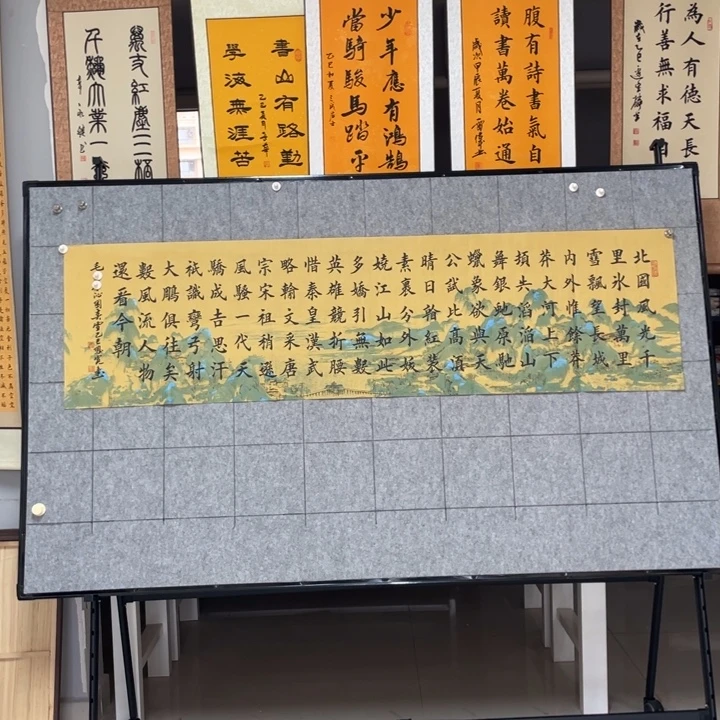 為人有德天長
行善無求福自
腹有詩書氣自
讀書萬卷始通
歲次甲辰夏月
少年應有鴻鵠
當騎駿馬踏平
書山有路勤
學海無涯苦
萬丈紅塵三杯
千秋大業一
北國風光千
里冰封萬里
雪飄望長城
內外惟餘莽
莽大河上下
頓失滔滔山
舞銀蛇原馳
蠟象欲與天
公試比高須
晴日看紅裝
素裹分外妖
嬈江山如此
多嬌引無數
英雄競折腰
惜秦皇漢武
略輸文采唐
宗宋祖稍遜
風騷一代天
驕成吉思汗
祇識彎弓射
大鵰俱往矣
數風流人物
還看今朝
沁園春雪